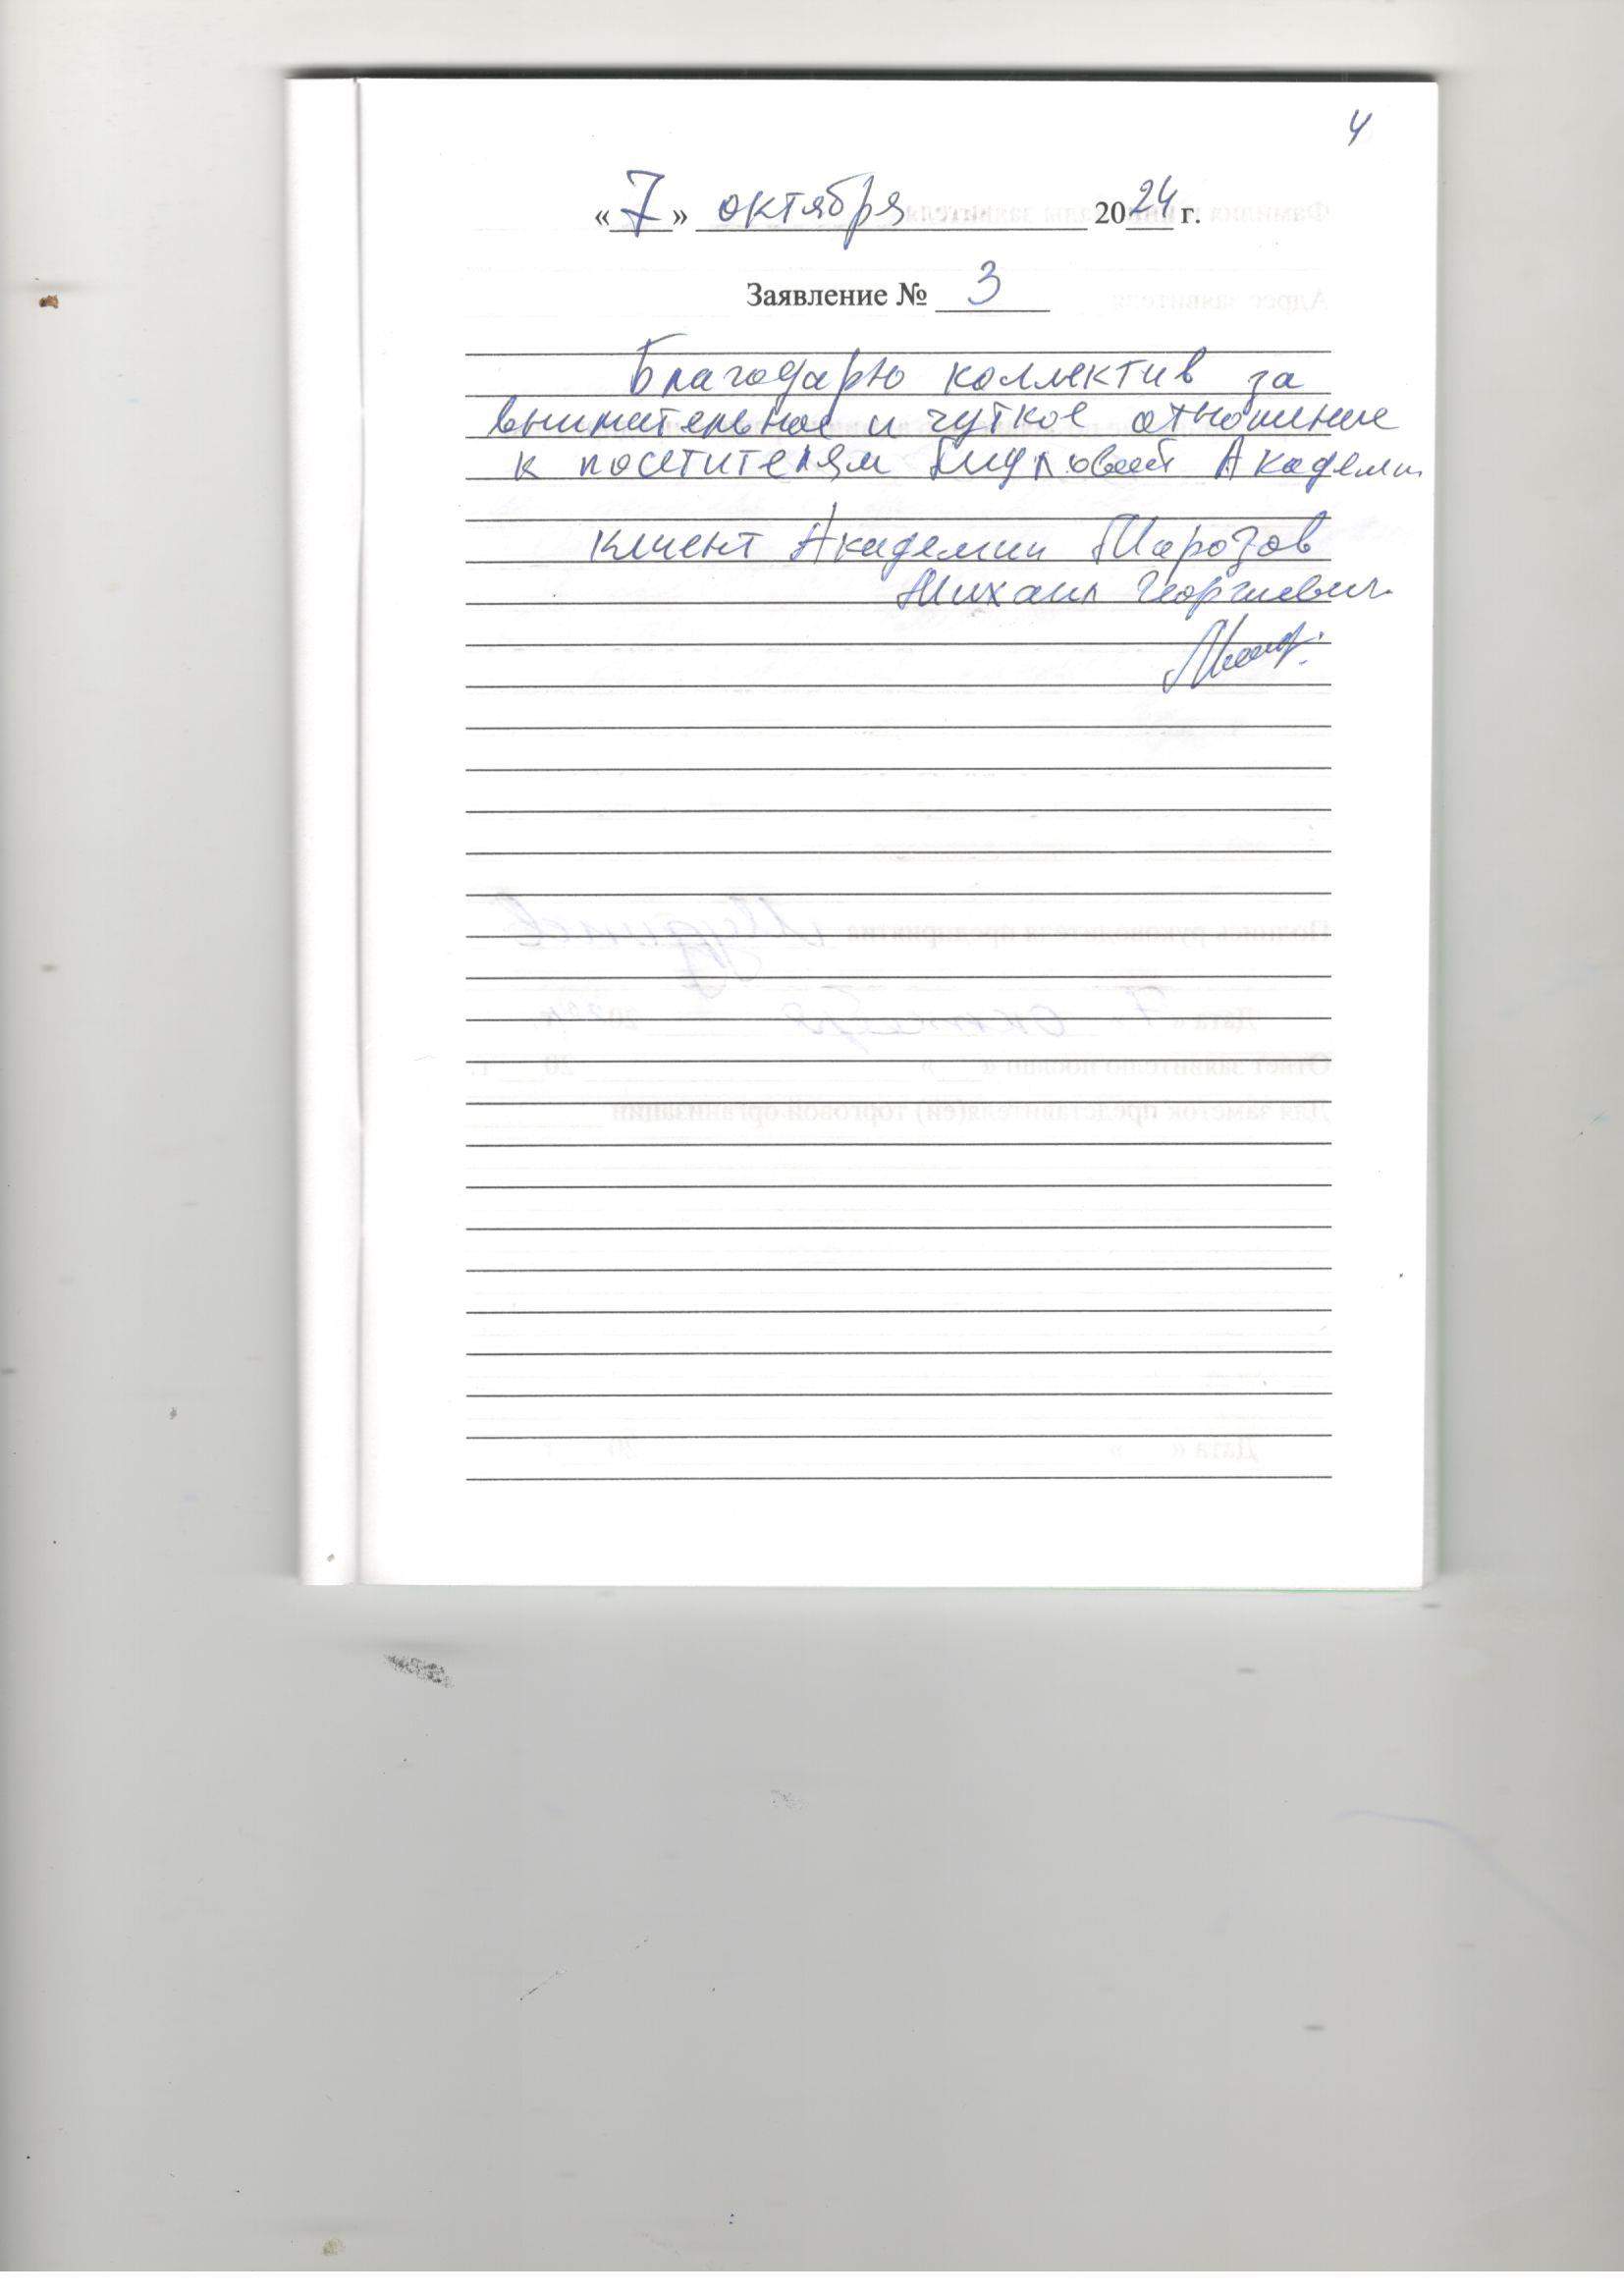 4
«7» октября 2024 г.
Заявление № 3
Благодарю коллектив за
внимательное и чуткое отношение
к посетителям Академии
клиент Академии Марозов
Михаил Георгиевич.